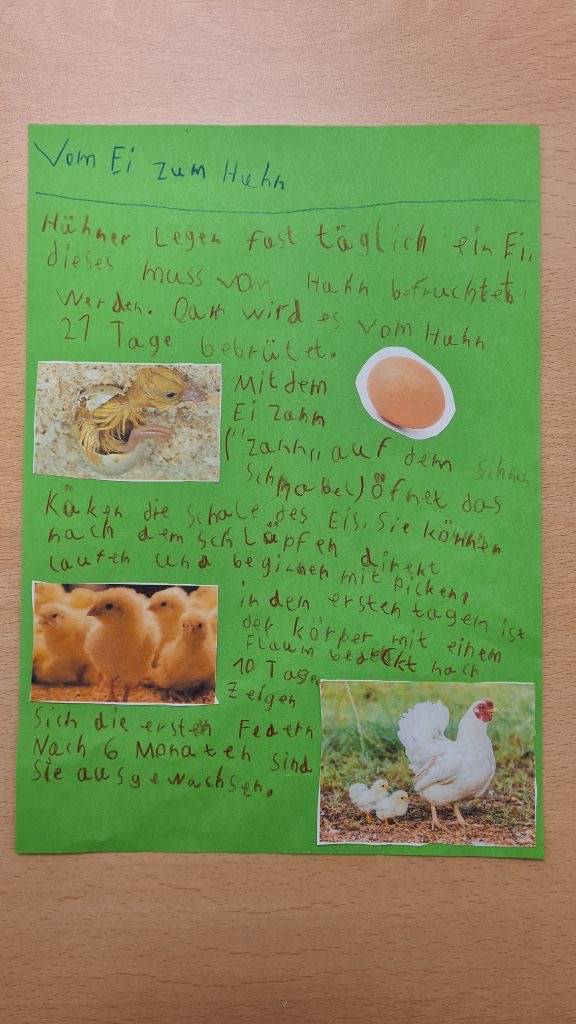 Vom Ei zum Huhn
Hühner Legen fast täglich ein Ei,
dieses muss vom Hahn befruchtet
werden. Dann wird es vom Huhn
21 Tage bebrütet.
Mit dem
Ei zahn
("zahn„ auf dem Schna
Schnabel) öfnet das
Käken die Schale des Eis. Sie können
nach dem schlüpfen direkt
laufen und beginnen mit picken,
in den ersten tagen ist
der körper mit einem
Flaum bedeckt nach
10 Tagen
Zeigen
Sich die ersten Federn
Nach 6 Monaten sind
Sie ausgewachsen.